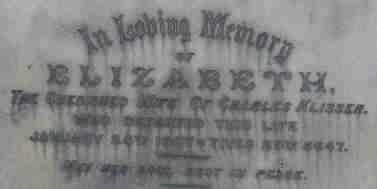 In Loving Memory
OF
ELIZABETH.
THE CHERISHED WIFE OF CHARLES
WHO DEPARTED THIS LIFE
JANUARY
MAY HER SOUL REST IN PEACE.